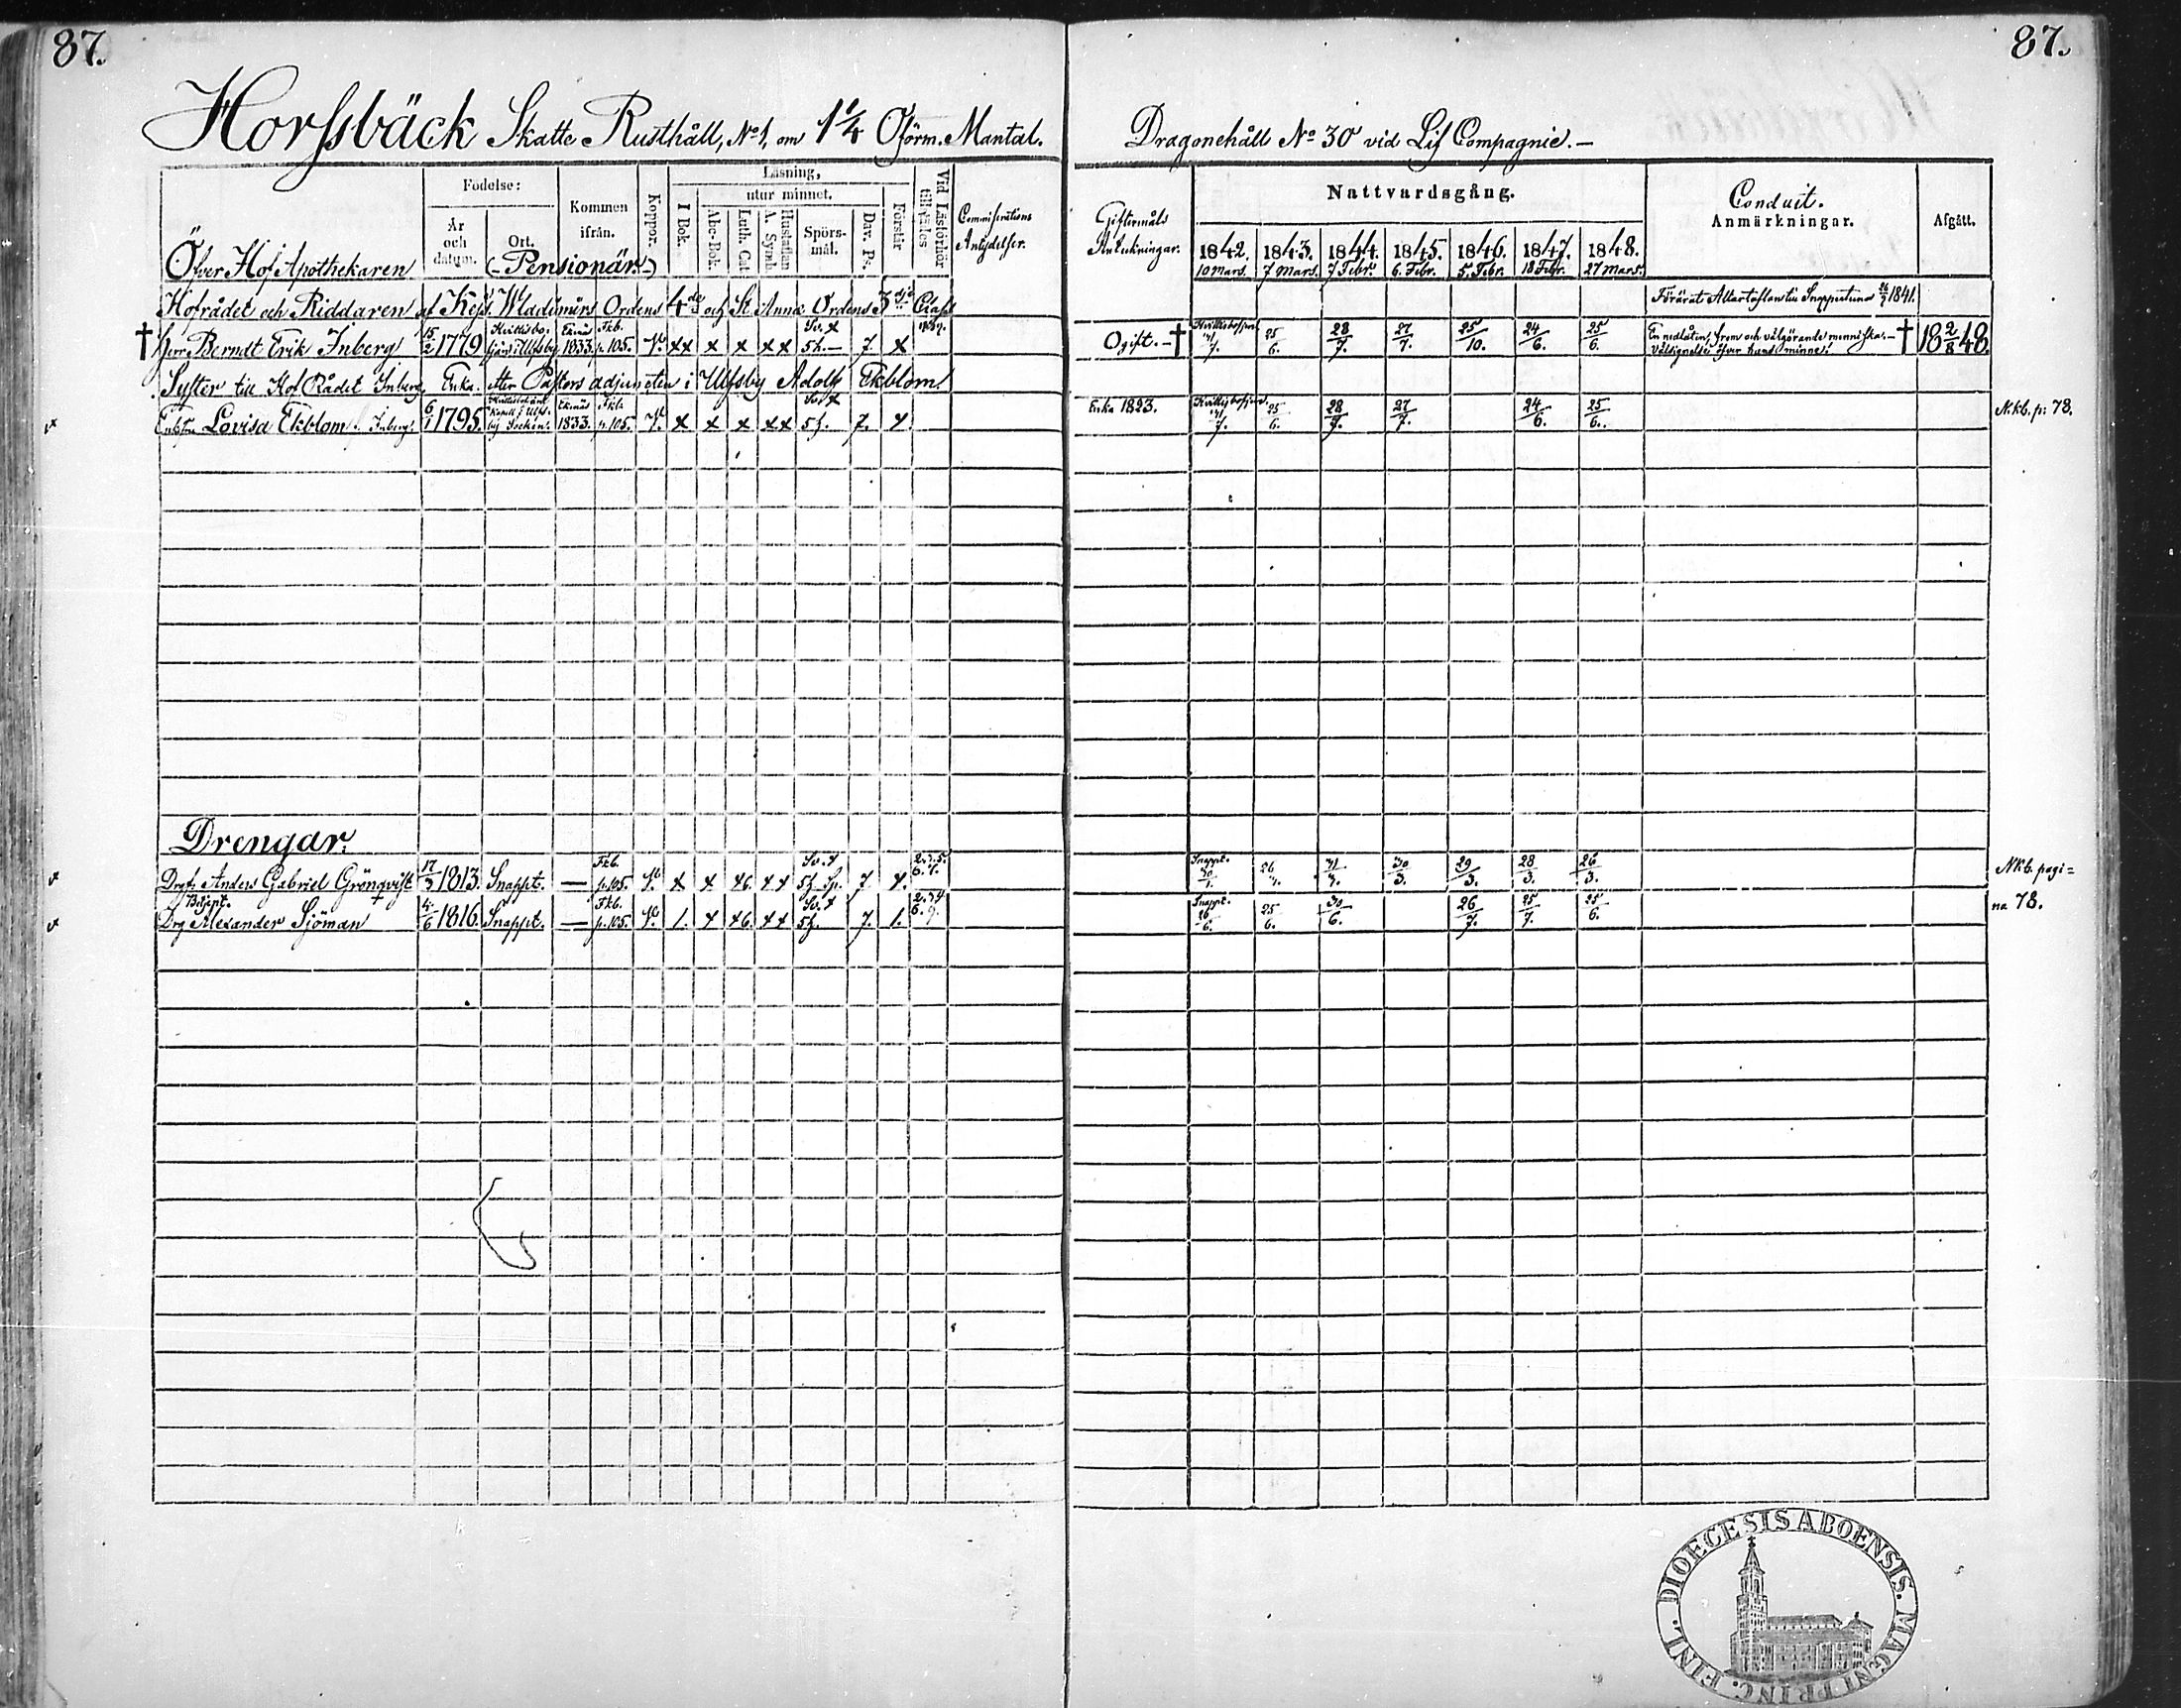 87.
87.
Horssbäck Skatte Rusthåll, No 1, om 1 1/4 Oförm. Mantal.
Dragonehåll No 30 vid Lif Compagnie. –
Födelse:
År och datum.
Ort.
Kommen ifrån.
Koppor.
Läsning,
utur minnet.
I Bok.
Abc-Bok.
Luth. Cat.
Hustaflan A. Symb.
Spörsmål.
Dav. Ps.
Förstår
Vid Läsförhör tillstädes
Giftermåls
Nattvardsgång.
1842. 1843. 1844. 1845. 1846. 1847. 1848.
10 Mars. 7 Mars. 7 Febr. 6. Febr. 5. Febr. 18 Febr. 27 Mars.
Conduit.
Anmärkningar.
Afgått.
Öfver Hof Apothekaren (-Pensionär-)
Hofrådet och Riddaren af Kejs. Wladimirs Ordens 4de och St Anna Ordens 3dje Class
Förärat Altartaflan till Snappertuna 1841.
† Herr Berndt Erik Inberg 15/2 1779 Ekenäs 1833. Fkb. p. 105. x x x x x Sv. x 5h. – 7. x
Ogift. – † 7. 25/6. 28/7. 27/7. 25/10. 24/6. 25/6. En nedlåten, from och välgörande menniska. – † 18 2/8 48.
Välsignelse öfver hans minne!
Syster till Hof Rådet Inberg, Enka efter Pastors adjuncten i Ulfsby Adolf Ekblom.
Lovisa Ekblom. Inberg. 6/1 1795. Ekenäs 1833. Fkb. p. 105. x x x x x Sv. x 5h. 7. x
Enka 1823. 7. 25/6. 28/7. 27/7. 24/6. 25/6. N.kb. p: 78.
Drengar.
Anders Gabriel Grönqvist 17/3 1813. Snappt. — Fkb. p. 105. x x x6. x x Sv. x 5h. Sp. 7 x.
Snappt. 31/3. 30/3. 29/3. 28/3. 26/3.
N.kb. pagi=
na 78.
Drg Alexander Sjöman 4/6 1816. Snappt. — Fkb. p. 105. 1. x x6. x x Sv. x 5h. 7. 1.
Snappt. 26/6. 25/6. 30/6. 26/7. 25/7. 25/6.
DIOECESIS ABOENSIS. MAGNI PRINC. FINL.